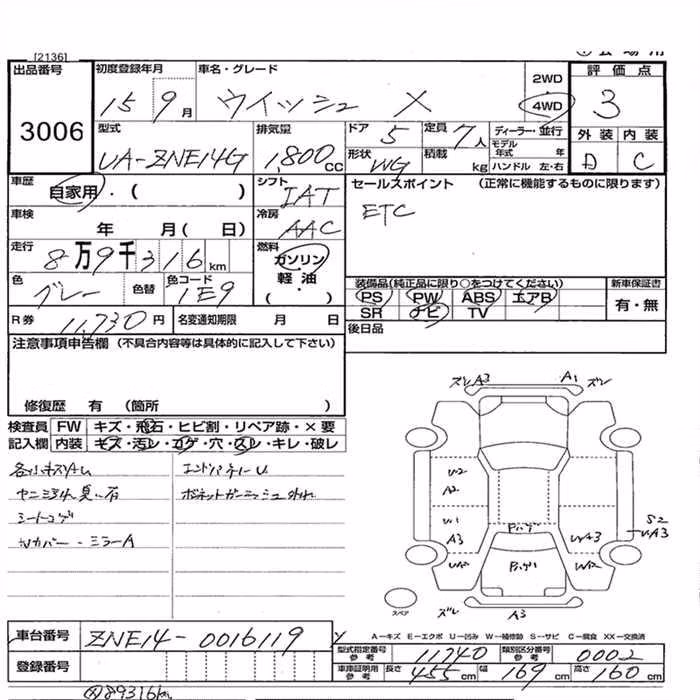 [2136]
出品番号
3006
初度登録年月
15 9月
車名・グレード
ウイッシュ X
2WD
4WD
評価点
3
外装 内装
D C
型式
UA-ZNE14G
排気量
1,800cc
ドア 5
定員 7人
形状 WG
積載 kg
ディーラー・並行
モデル年式 年
ハンドル 左・右
車歴
自家用・( )
シフト
IAT
セールスポイント (正常に機能するものに限ります)
ETC
車検
年 月( 日)
冷房
AAC
走行
8万9千316km
燃料
ガソリン
軽油
( ・ )
色
グレー
色替
色コード
1E9
装備品(純正品に限り○をつけてください)
PS PW ABS エアB
SR ナビ TV
新車保証書
有・無
R券 11,730円
名変通知期限 月 日
後日品
注意事項申告欄(不具合内容等は具体的に記入して下さい)
修復歴 有 (箇所 )
検査員
記入欄
FW キズ・飛石・ヒビ割・リペア跡・×要
内装 キズ・汚レ・コゲ・穴・スレ・キレ・破レ
シートコゲ
カバー・ミラーA
エンドパネルU
ボネットガーニッシュ外れ
ズレ A3
A1 ズレ
U2
A2
U1
A3
A3
S2
UA3
W2
ズレ
A3
スペア
A-キズ E-エクボ U-凹み W-補修跡 S-サビ C-腐食 XX-交換済
車台番号 ZNE14-0016119
登録番号
型式指定番号 参考 11740
類別区分番号 参考 0002
車庫証明用 参考 長さ 455cm 幅 169cm 高さ 160cm
89316km